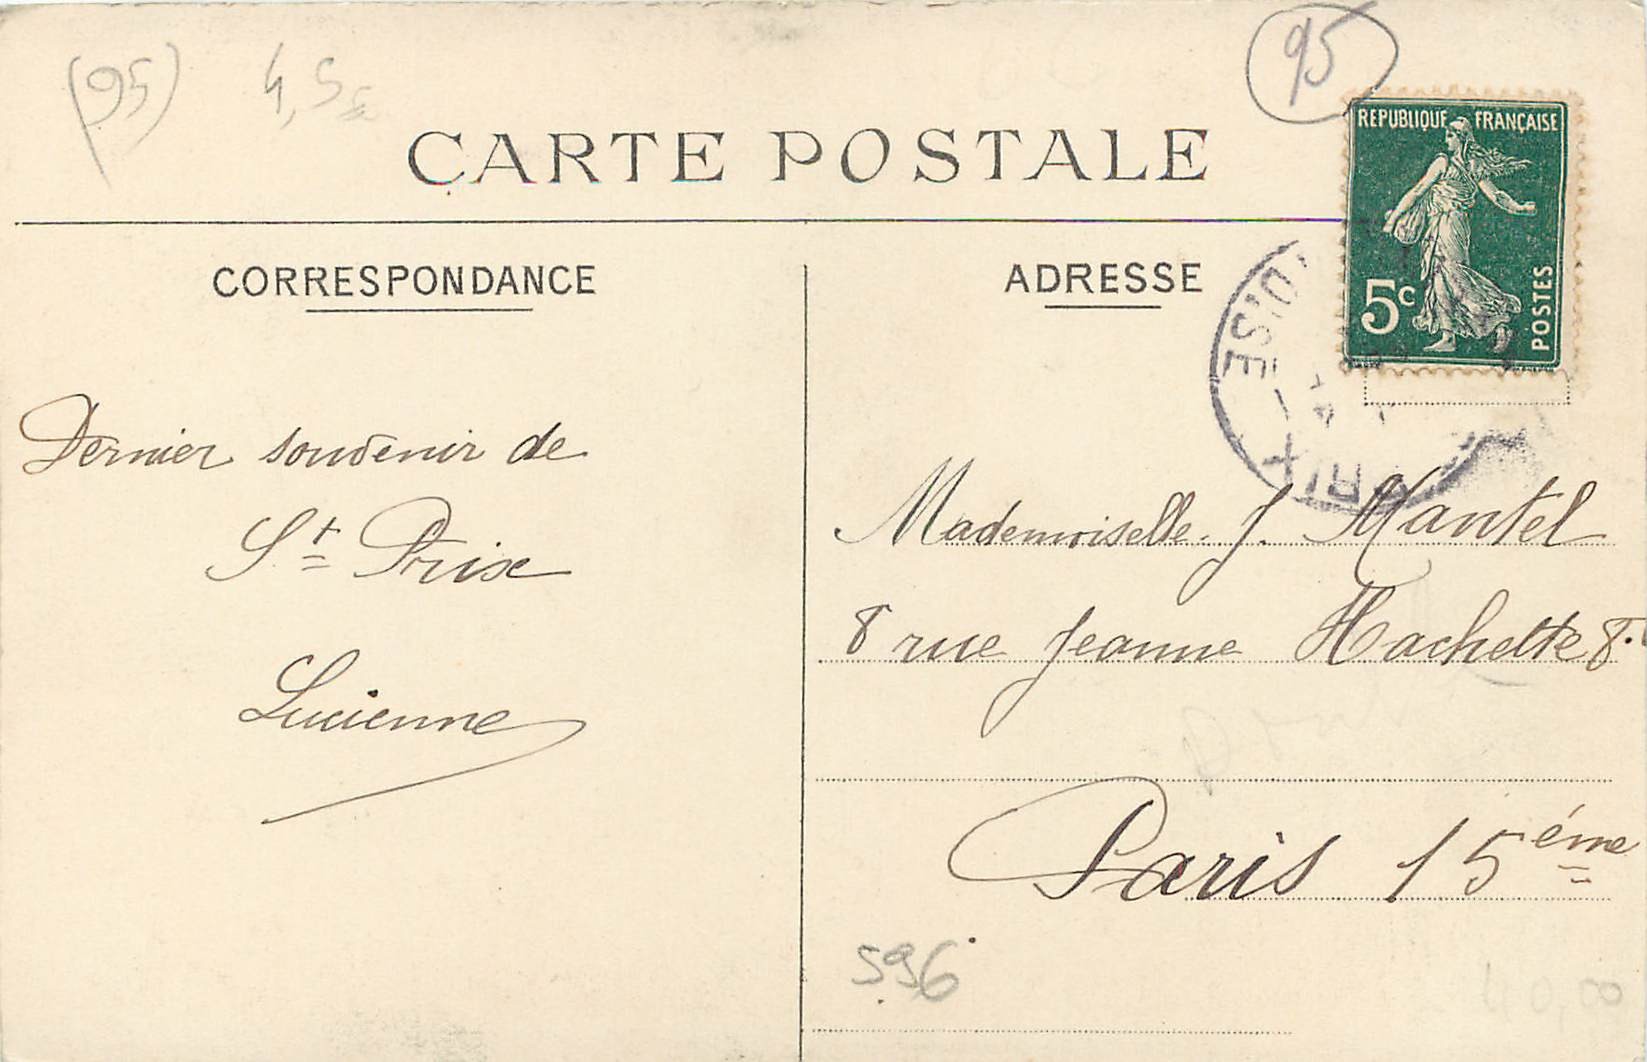 (95)
4,5
95
CARTE POSTALE
RÉPUBLIQUE FRANÇAISE
5c
POSTES
CORRESPONDANCE
ADRESSE
OISE
PRIX
Dernier souvenir de
St Prix
Lucienne
Mademoiselle. J. Mantel
8 rue Jeanne Hachette 8.
Paris 15ème
596
40,00